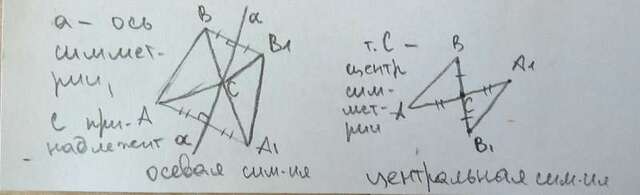 а – ось
симмет-
рии,
С при-
надлежит
а
B
a
B1
C
A
A1
осевая сим-ия
т. С –
центр
сим-
мет-
рии
B
A1
A
C
B1
центральная сим-ия